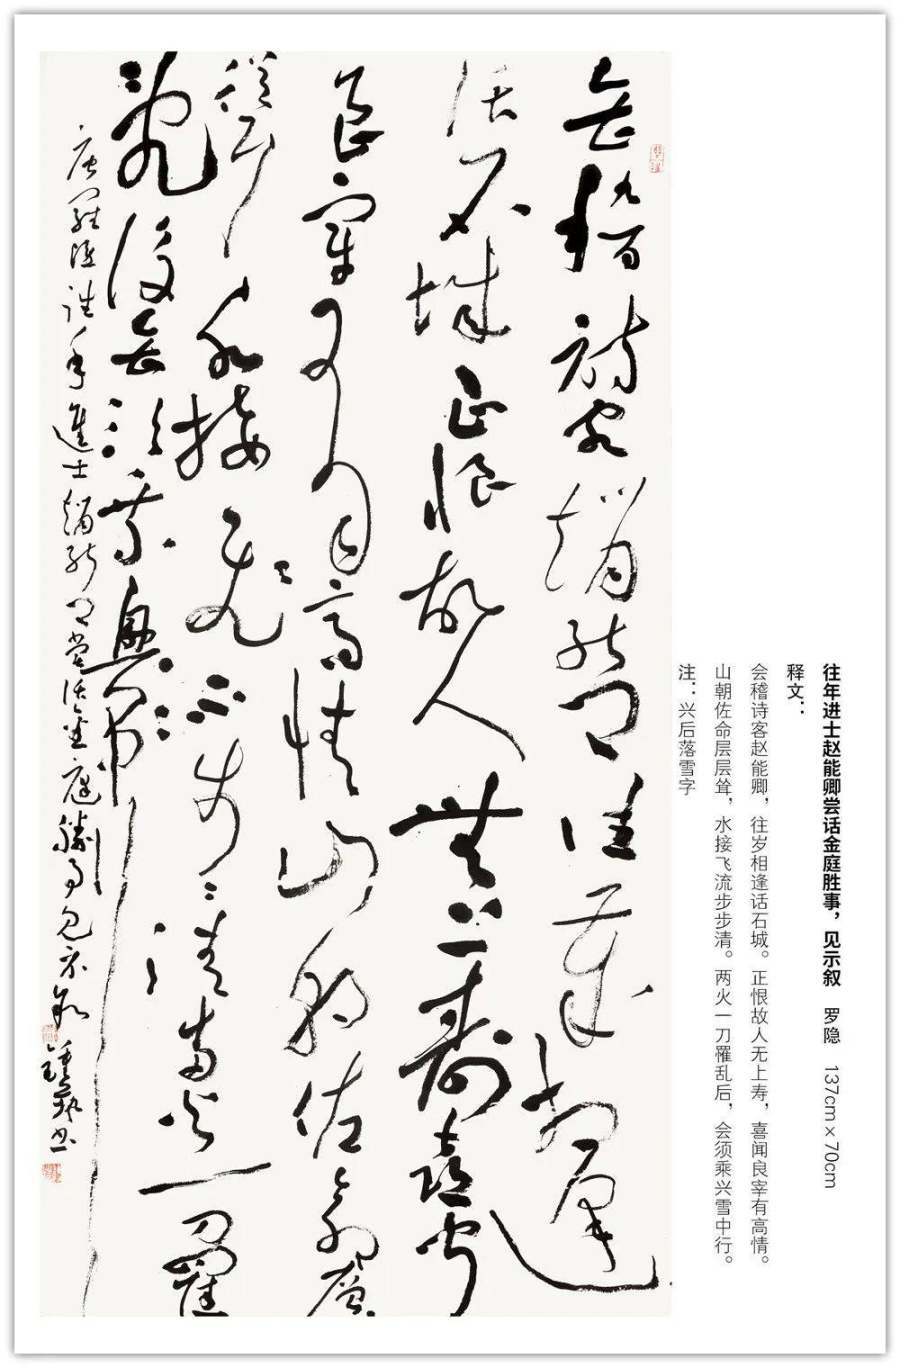 往年进士赵能卿尝话金庭胜事，见示叙　罗隐　137cm×70cm
释文：
会稽诗客赵能卿，往岁相逢话石城。正恨故人无上寿，喜闻良宰有高情。
山朝佐命层层耸，水接飞流步步清。两火一刀罹乱后，会须乘兴雪中行。
注：兴后落雪字
会稽诗客趙能卿往歲相逢
话石城正恨故人無上壽喜闻
良宰有高情山朝佐命層
聳水接飞流步步清两火一刀罹
乱後会须乘興中行
唐羅隐往年進士趙能卿尝话金庭勝事见示叙